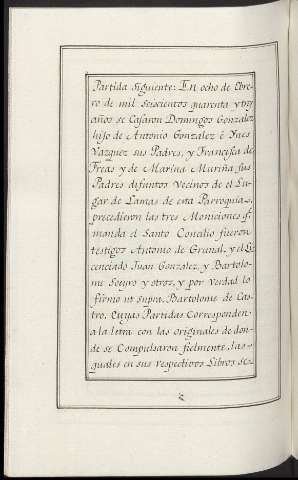 Partida siguiente: En ocho de Ebre-
ro de mil Seiscientos quarenta y tres
años se Casaron Domingos Gonzalez
hijo de Antonio Gonzalez è Ynes
Vazquez sus Padres, y Francisca de
Freas y de Marina Muriña, sus
Padres difuntos Vecinos de el Lu-
gar de Lamas de esta Parroquia,
precedieron las tres Moniciones q.e
manda el Santo Concilio fueron
testigos Antonio de Grundl, y el Li-
cenciado Juan Gonzalez, y Bartolo-
me Soeyro y otros, y por verdad lo
firmo ut supra. Bartolome de Cas-
tro. Cuyas Partidas Corresponden
a la letra con las originales de don-
de se Compulsaron fielmente, las-
quales en sus respectivos Libros se-